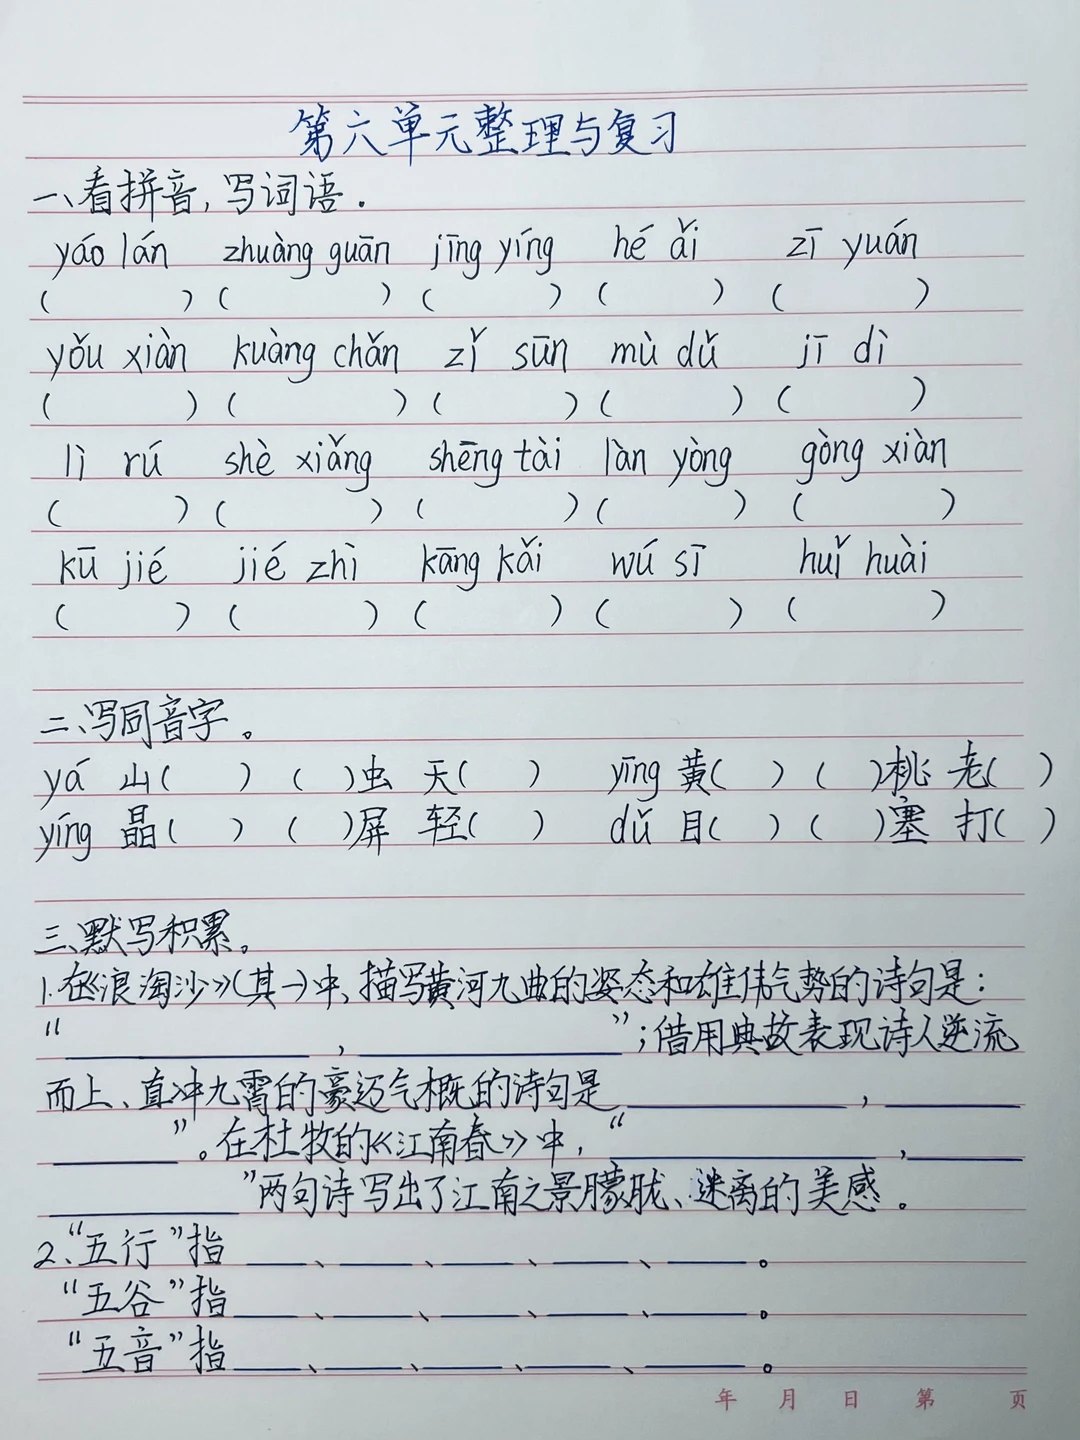 第六单元整理与复习
一、看拼音,写词语.
yáo lán zhuàng guān jīng yíng hé ǎi zī yuán
( ) ( ) ( ) ( ) ( )
yǒu xiàn kuàng chǎn zǐ sūn mù dǔ jī dì
( ) ( ) ( ) ( ) ( )
lì rú shè xiǎng shēng tài làn yòng gòng xiàn
( ) ( ) ( ) ( ) ( )
kū jié jié zhì kāng kǎi wú sī huǐ huài
( ) ( ) ( ) ( ) ( )
二、写同音字。
yá 山( ) ( )虫 天( ) yīng 黄( ) ( )桃 老( )
yíng 晶( ) ( )屏 轻( ) dǔ 目( ) ( )塞 打( )
三、默写积累。
1.在《浪淘沙》(其一)中、描写黄河九曲的姿态和雄伟气势的诗句是:
“________,________”;借用典故表现诗人逆流
而上、直冲九霄的豪迈气概的诗句是________,____
____”。在杜牧的《江南春》中,“________,____
____”两句诗写出了江南之景朦胧、迷离的美感。
2、“五行”指____、____、____、____、____。
“五谷”指____、____、____、____、____。
“五音”指____、____、____、____、____。
年 月 日 第 页